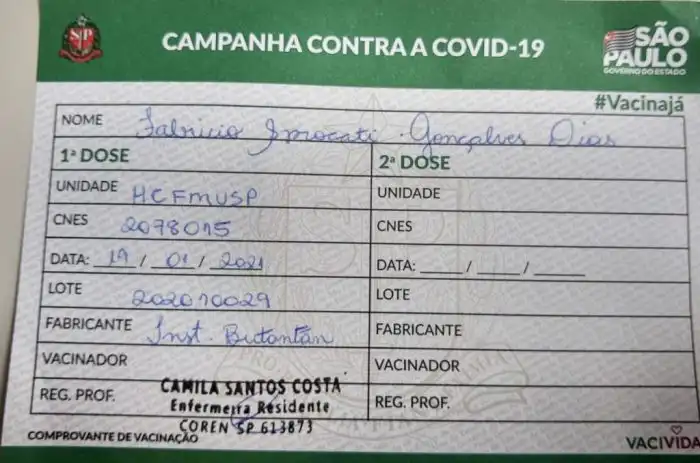 SP
CAMPANHA CONTRA A COVID-19
SÃO
PAULO
GOVERNO DO ESTADO
#Vacinajá
NOME Fabricio Imocati Gonçalves Dias
1ª DOSE
2ª DOSE
UNIDADE HCFMUSP
UNIDADE
CNES 2078015
CNES
DATA: 19 / 01 / 2021
DATA: ____ / ____ / ____
LOTE 202010029
LOTE
FABRICANTE Inst. Butantan
FABRICANTE
VACINADOR
VACINADOR
REG. PROF. CAMILA SANTOS COSTA
Enfermeira Residente
COREN SP 613873
REG. PROF.
COMPROVANTE DE VACINAÇÃO
VACIVIDA